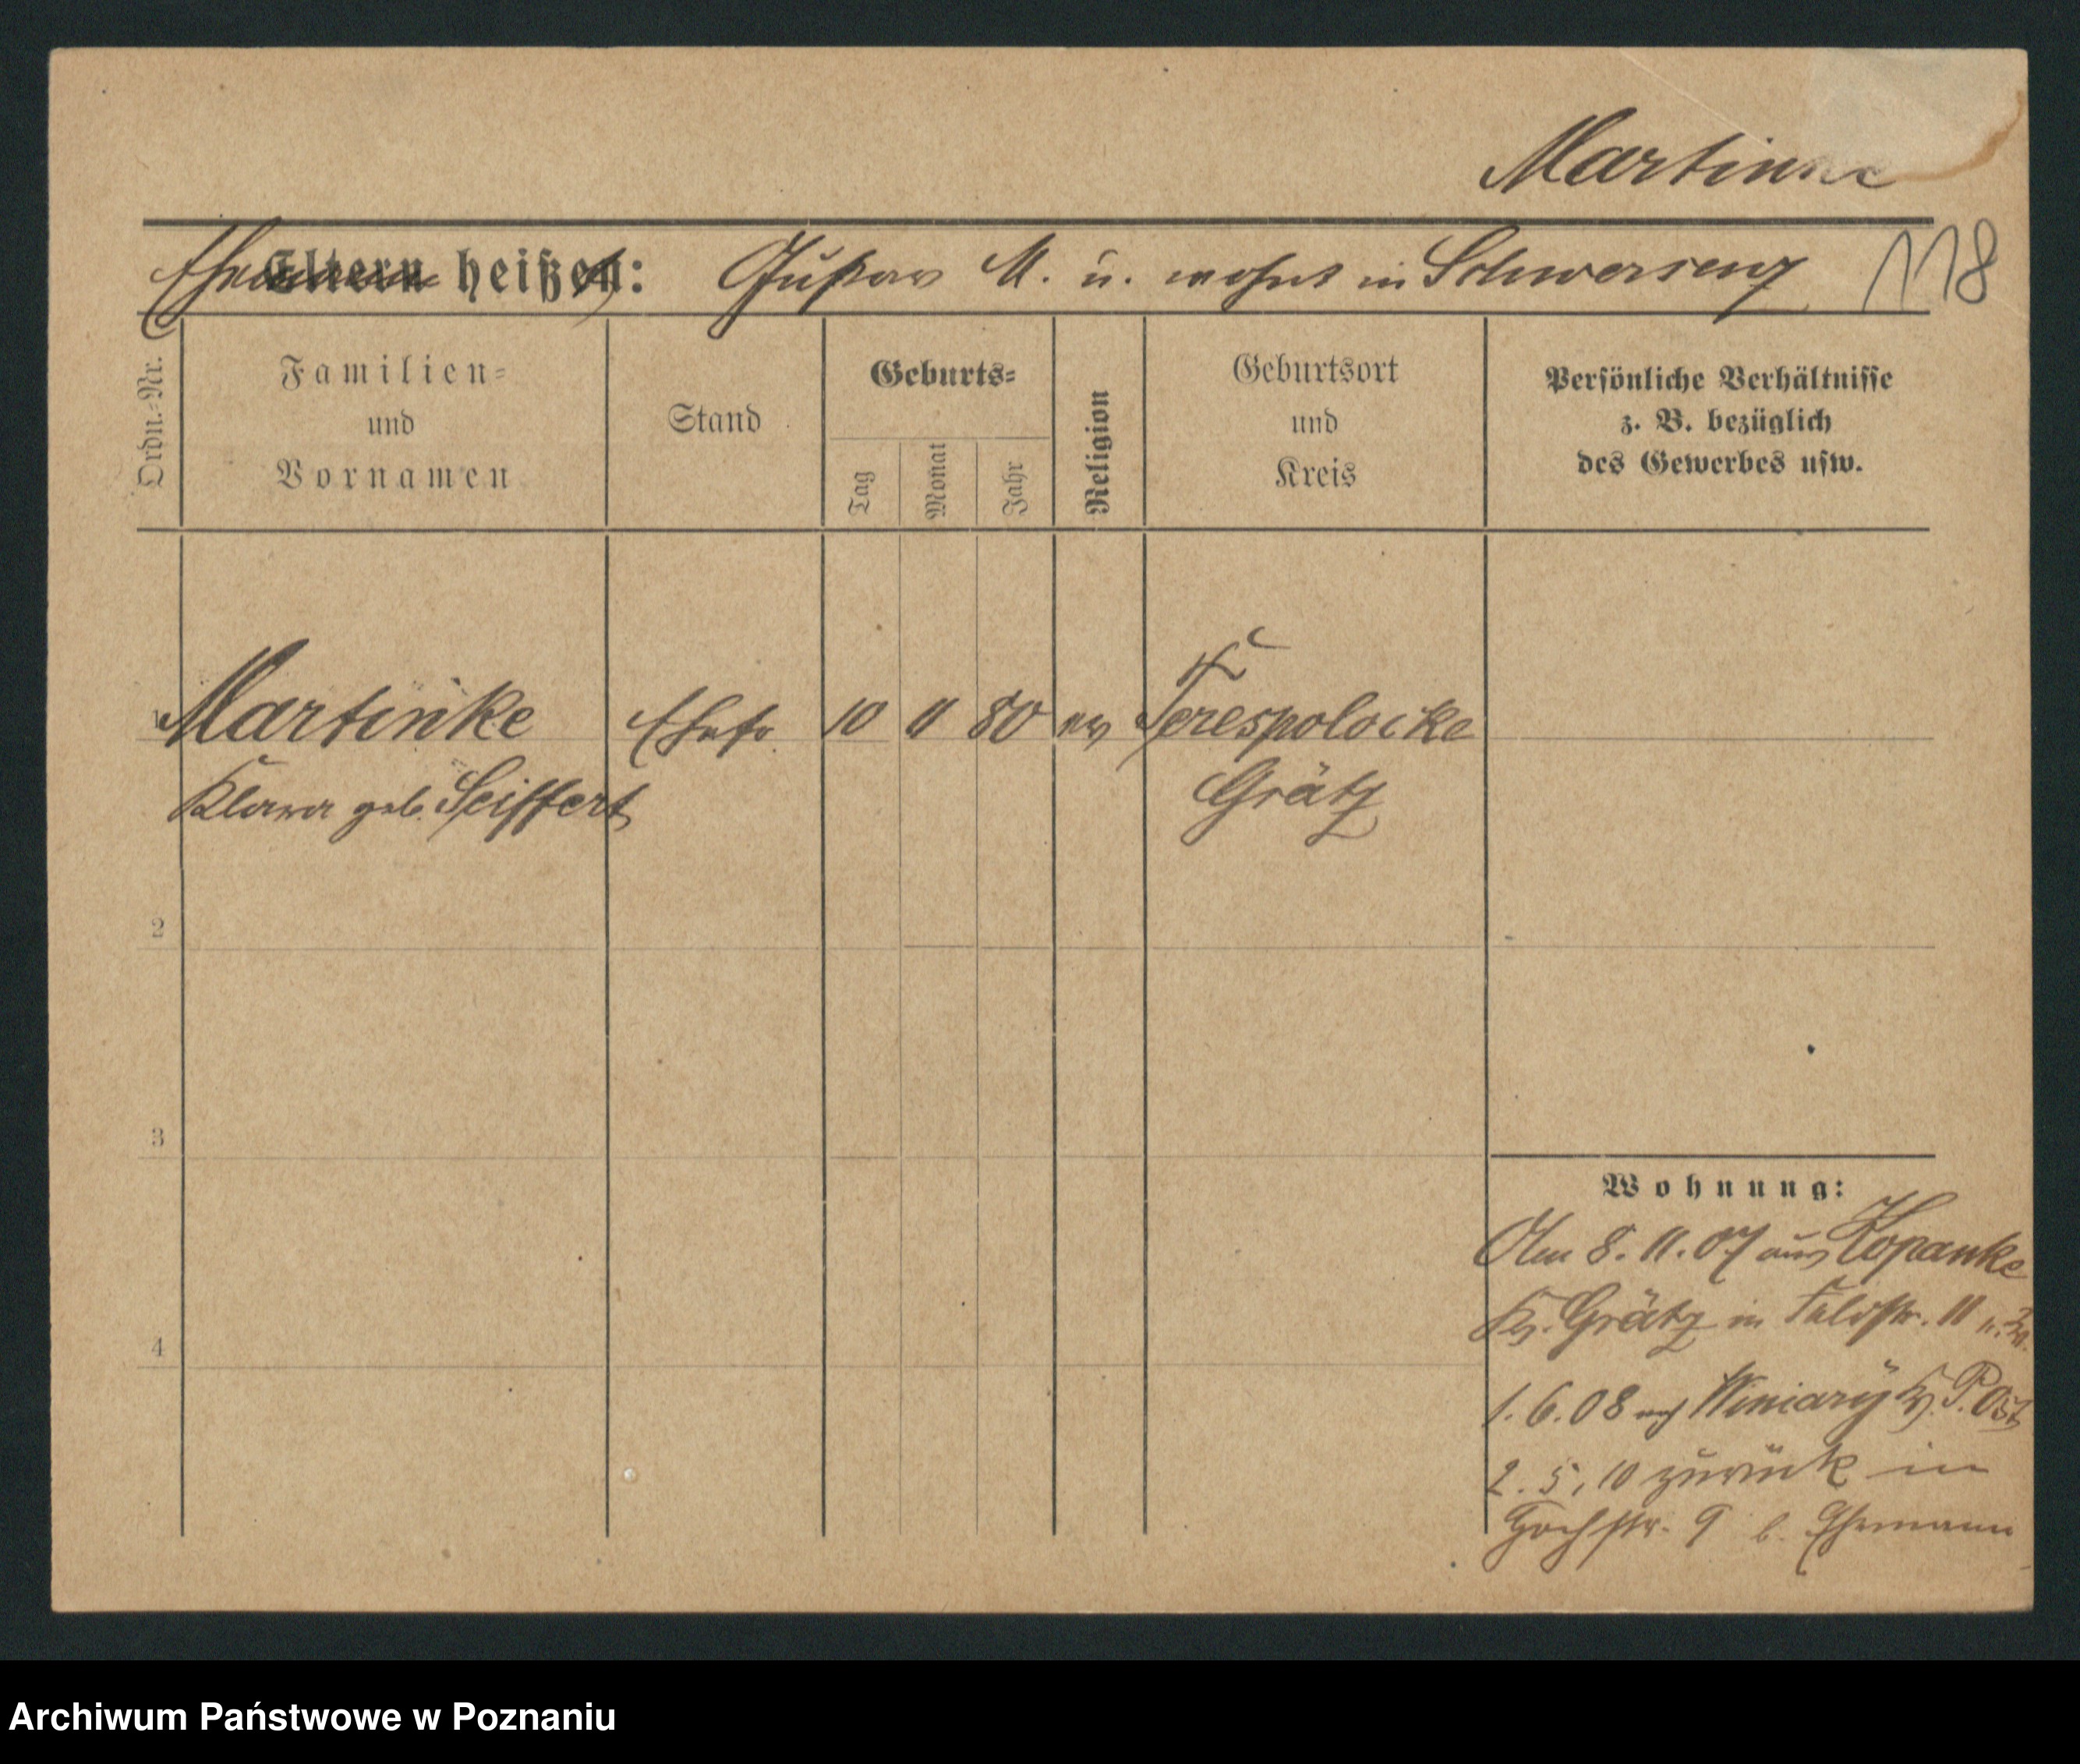 Martinke
118
Ehemann heißt: Gustav M. u. wohnt in Schwersenz
Eltern heißen:
Ordn.-Nr.
Familien-
und
Vornamen
Stand
Geburts-
Tag
Monat
Jahr
Religion
Geburtsort
und
Kreis
Persönliche Verhältnisse
z. B. bezüglich
des Gewerbes usw.
1
Martinke Ehefr. 10 11 80 ev Terespolocke
Klara geb. Seiffert Grätz
2
3
4
Wohnung:
Am 8.11.07 aus Kopanke
Kr. Grätz in Feldstr. 11
1.6.08 nach Winiary Kr. P. Ost
2.5.10 zurück in
Hochstr. 9 b. Ehemann
Archiwum Państwowe w Poznaniu